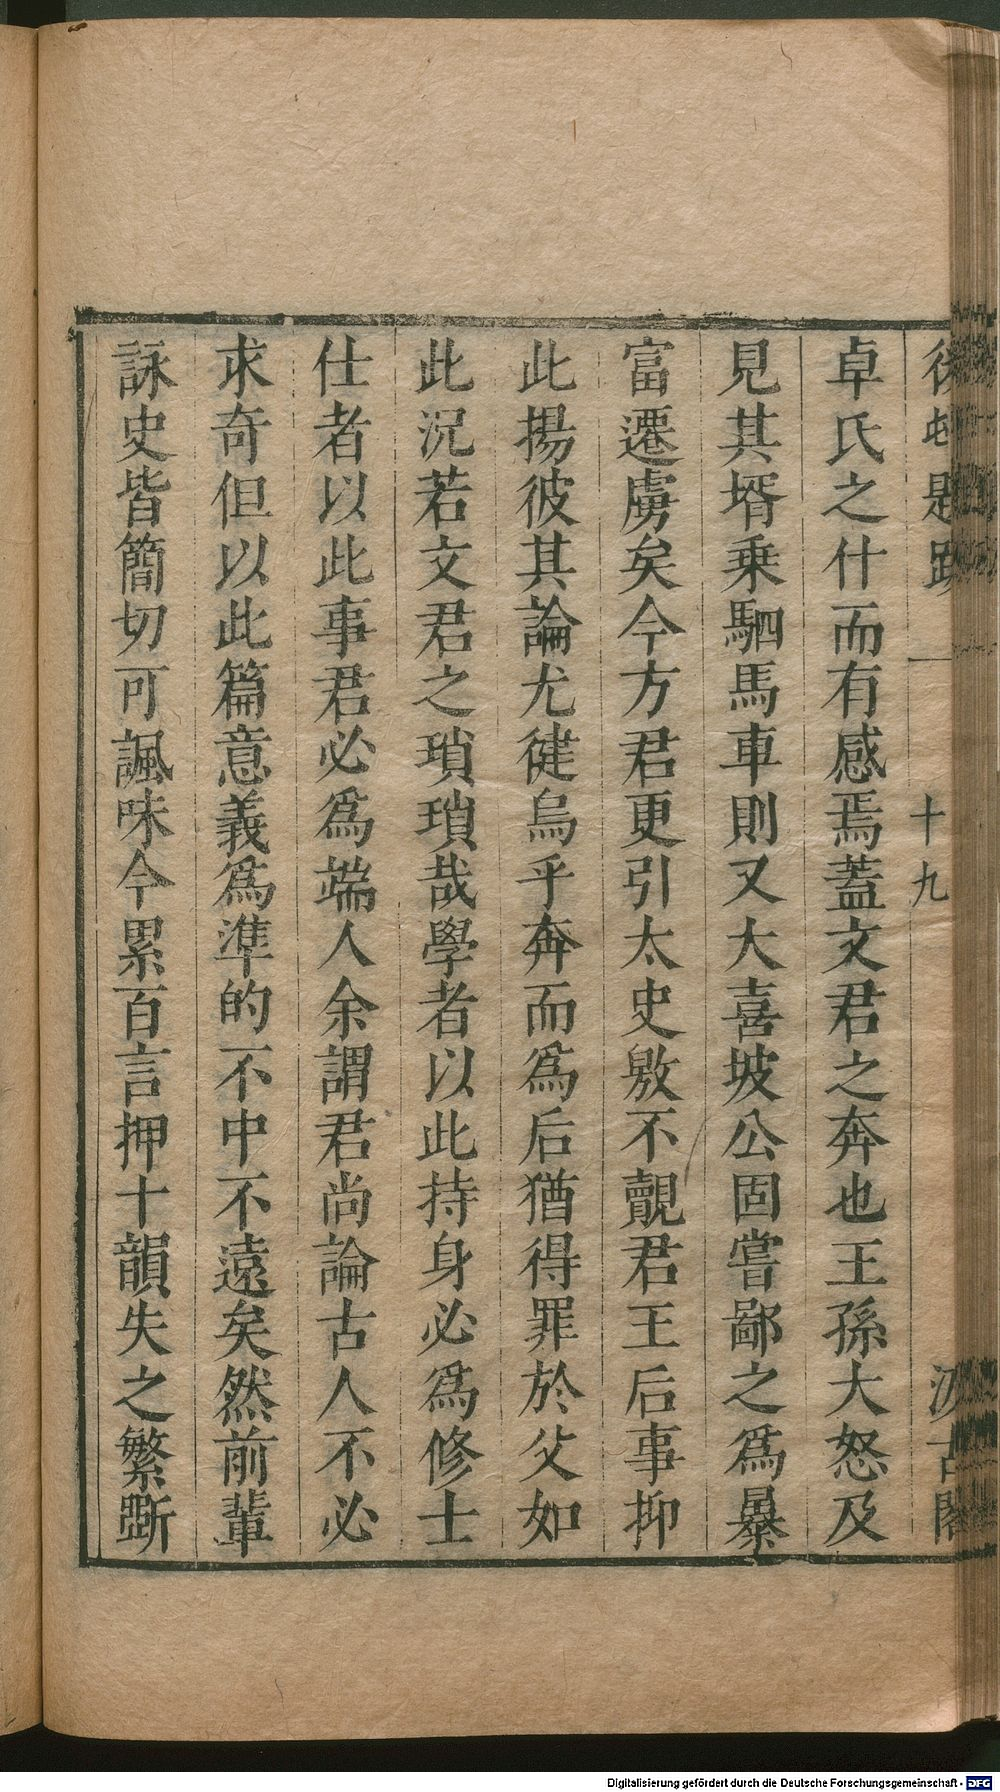 後村題跋 一 十九 汲古閣
卓氏之什而有感焉蓋文君之奔也王孫大怒及
見其壻乗駟馬車則又大喜坡公固嘗鄙之爲暴
富遷虜矣今方君更引太史敫不覿君王后事抑
此揚彼其論尤徤烏乎奔而爲后猶得罪於父如
此况若文君之瑣瑣哉學者以此持身必爲修士
仕者以此事君必爲端人余謂君尚論古人不必
求奇但以此篇意義爲準的不中不遠矣然前輩
詠史皆簡切可諷味今累百言押十韻失之繁斵
Digitalisierung gefördert durch die Deutsche Forschungsgemeinschaft - DFG